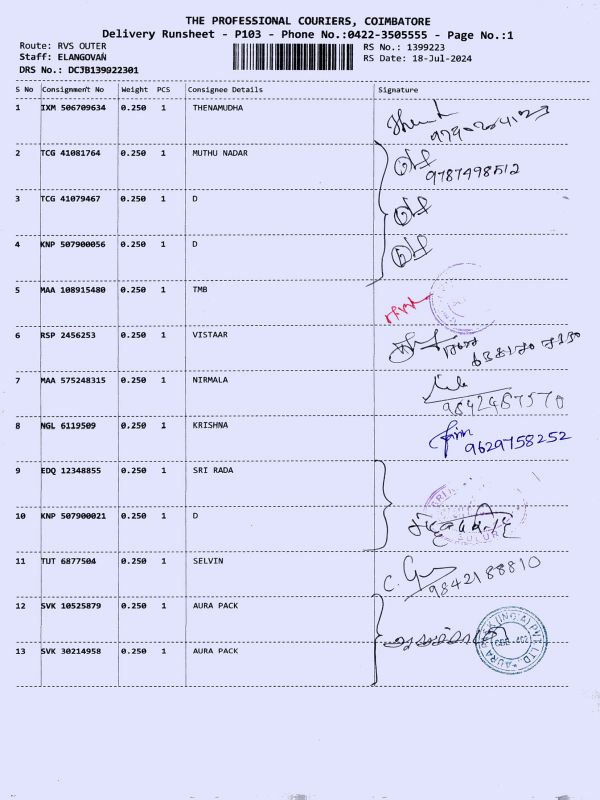 THE PROFESSIONAL COURIERS, COIMBATORE
Delivery Runsheet - P103 - Phone No.:0422-3505555 - Page No.:1
Route: RVS OUTER
RS No.: 1399223
Staff: ELANGOVAN
RS Date: 18-Jul-2024
DRS No.: DCJB139922301
S No Consignment No Weight PCS Consignee Details Signature
1 IXM 506709634 0.250 1 THENAMUDHA
2 TCG 41081764 0.250 1 MUTHU NADAR
9787498512
3 TCG 41079467 0.250 1 D
4 KNP 507900056 0.250 1 D
5 MAA 108915480 0.250 1 TMB
6 RSP 2456253 0.250 1 VISTAAR
7 MAA 575248315 0.250 1 NIRMALA
9842487570
8 NGL 6119509 0.250 1 KRISHNA
9629758252
9 EDQ 12348855 0.250 1 SRI RADA
10 KNP 507900021 0.250 1 D
SULUR
11 TUT 6877504 0.250 1 SELVIN
9842188810
12 SVK 10525879 0.250 1 AURA PACK
13 SVK 30214958 0.250 1 AURA PACK